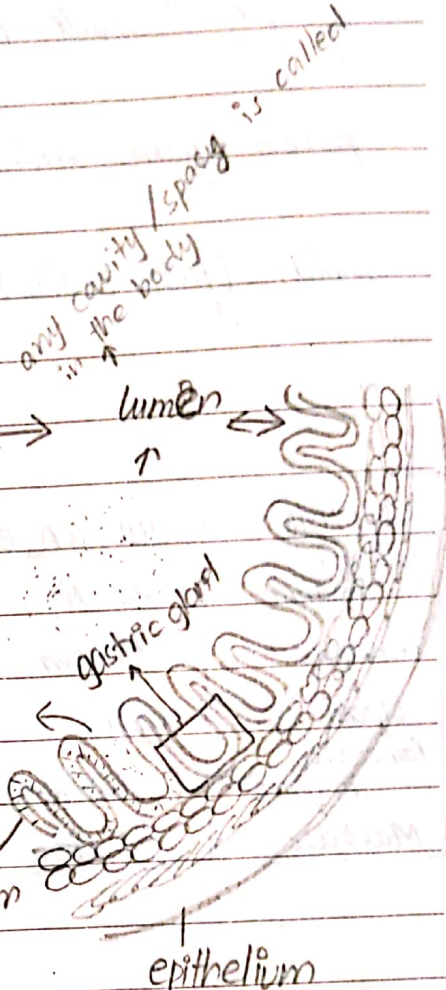 any cavity / spacy is called
in the body
lumen
gastric gland
epithelium